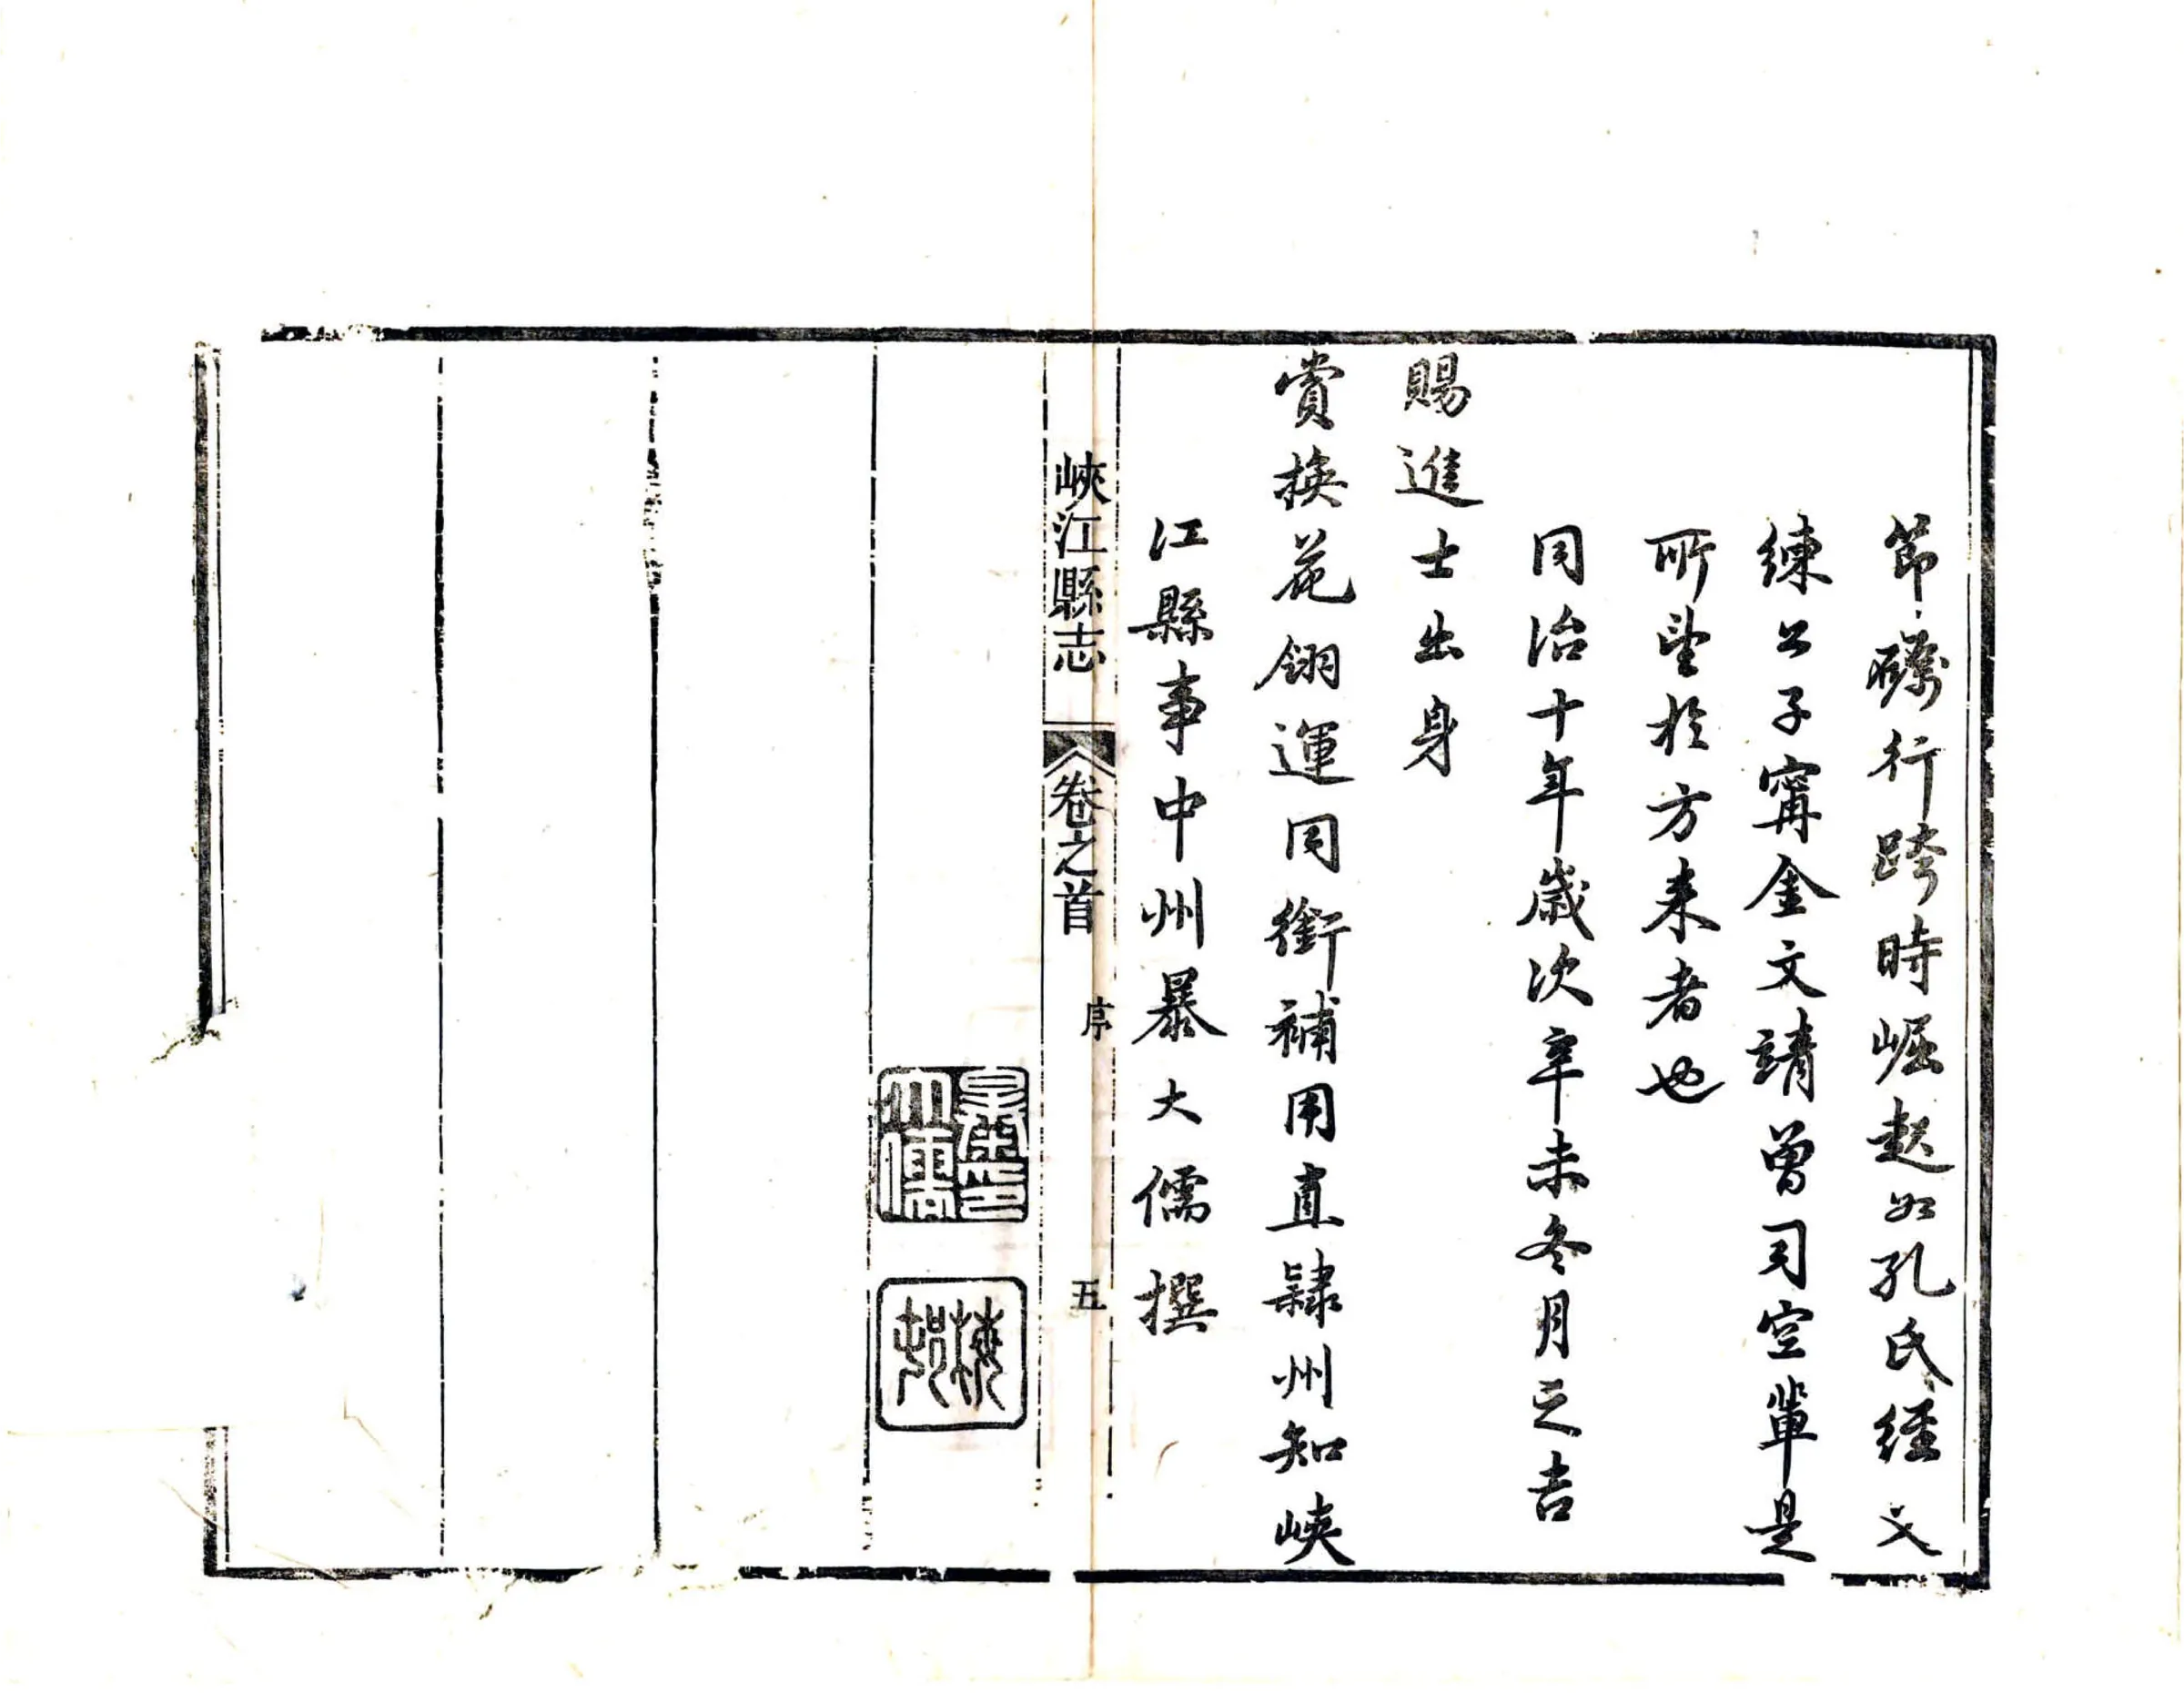 節礪行跨時崛起如孔氏經文
練公子寗金文靖曾司空輩是
所望於方来者也
同治十年歲次辛未冬月之吉
賜進士出身
賞換花翎運同銜補用直隸州知峽
江縣事中州暴大儒撰
峽江縣志
卷之首
序
五
暴印大儒
梅村